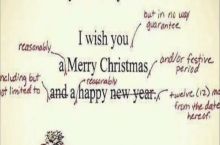 but in no way
guarantee
I wish you
reasonably
a Merry Christmas
and/or festive
period
including but
not limited to
reasonably
and a happy new year.
twelve (12) mo
from the date
hereof.